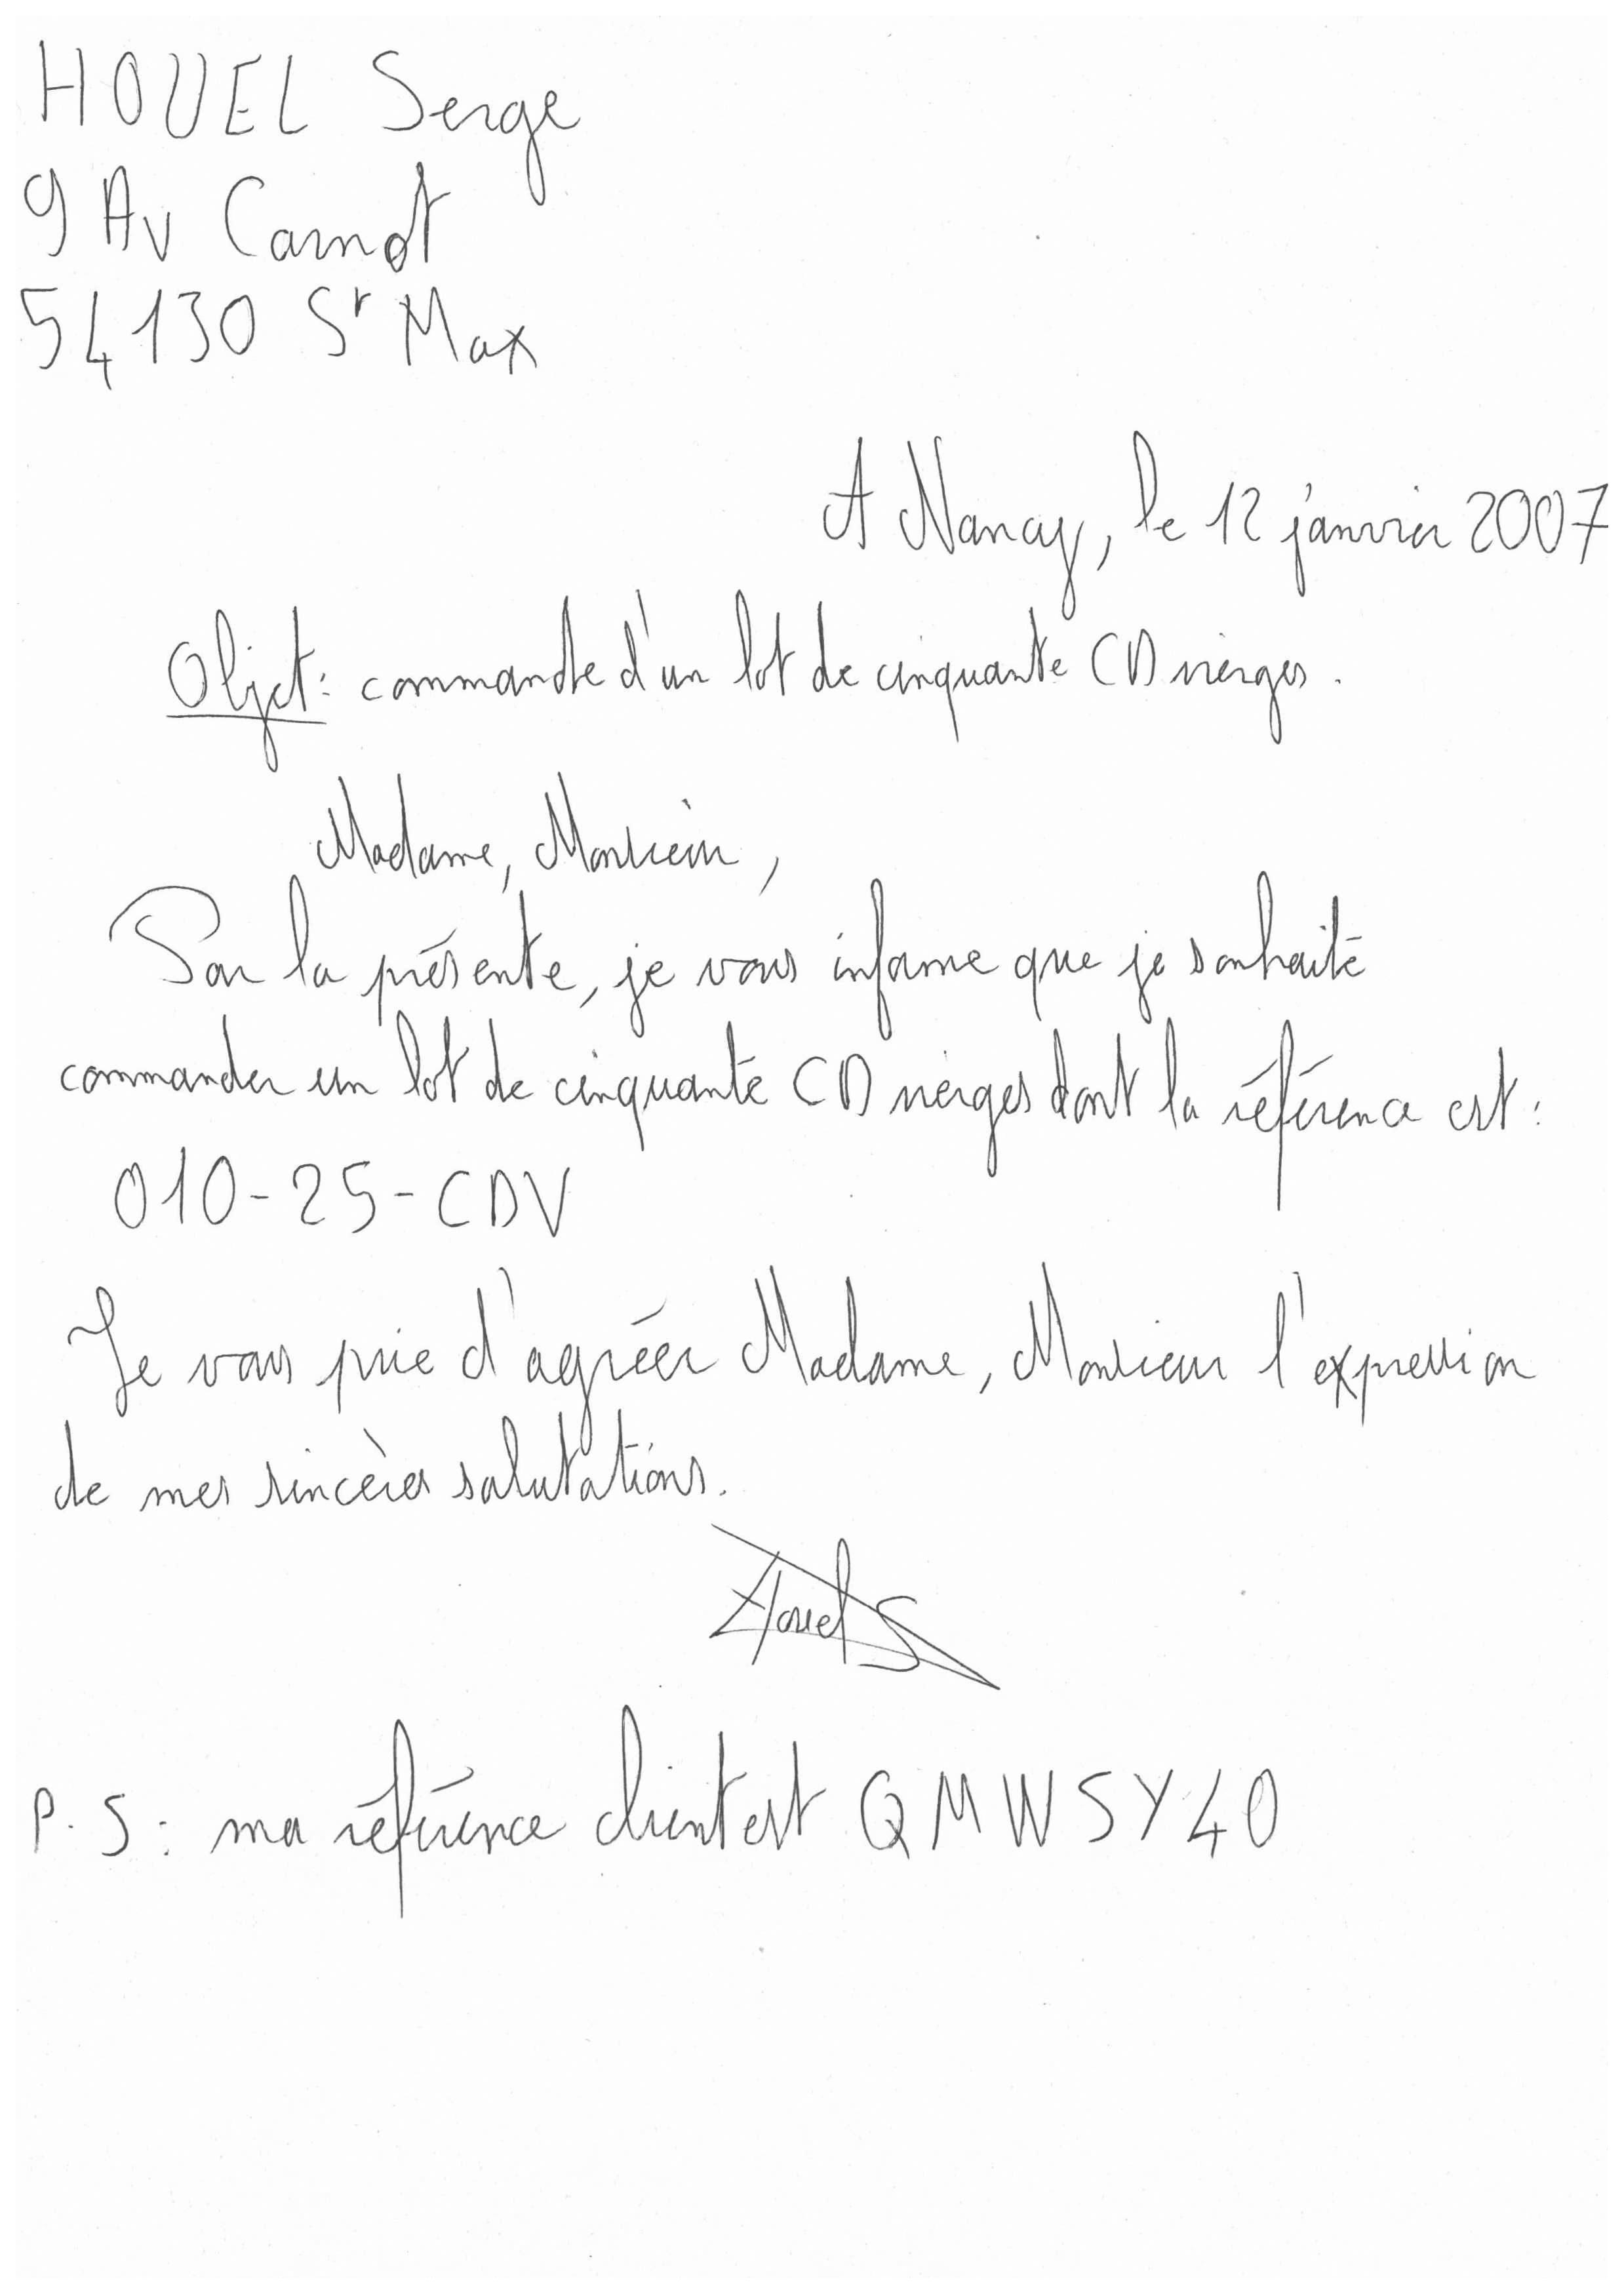 HOUEL Serge
9 Av Carnot
54130 St Max
A Nancy, le 12 janvier 2007
Objet : commande d'un lot de cinquante CD vierges.
Madame, Monsieur,
Par la présente, je vous informe que je souhaite
commander un lot de cinquante CD vierges dont la référence est :
010-25-CDV
Je vous prie d'agréer Madame, Monsieur l'expression
de mes sincères salutations.
Houel S
P.S : ma référence client est QMWSY40